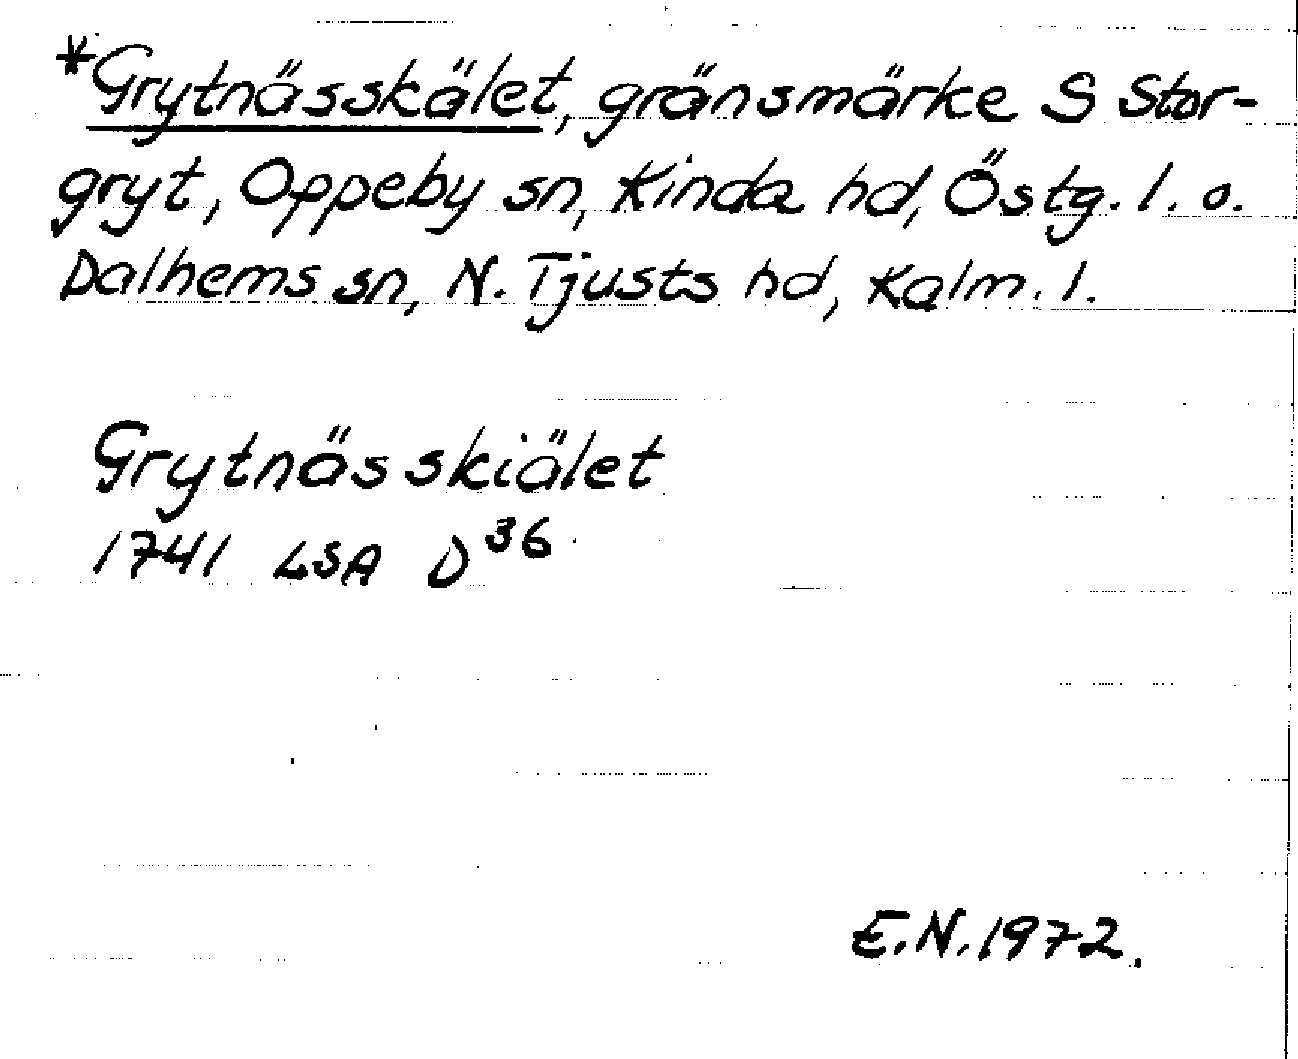 *Grytnässkälet, gränsmärke S Stor-
gryt, Oppeby sn, Kinda hd, Östg. l. o.
Dalhems sn, N. Tjusts hd, Kalm. l.
Grytnäs skiälet
1741 LSA D³⁶
E.N. 1972.